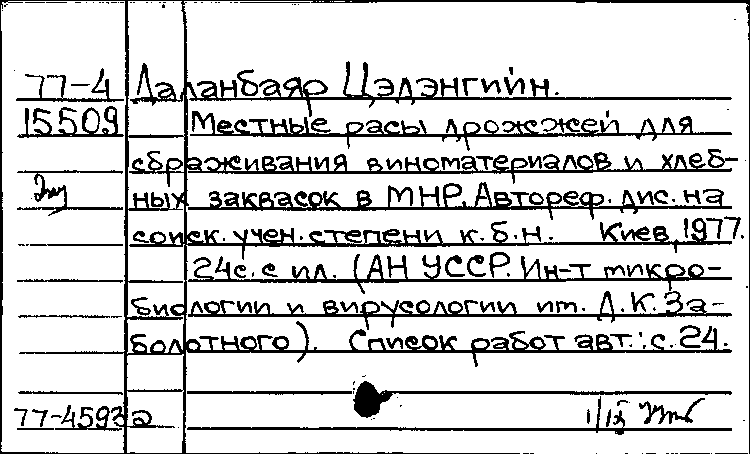 77-4 Даланбаяр Цэдэнгийн.
15509 Местные расы дрожжей для
сбраживания виноматериалов и хлеб-
ных заквасок в МНР. Автореф. дис. на
соиск. учен. степени к.б.н. Киев, 1977.
24с. с ил. (АН УССР. Ин-т микро-
биологии и вирусологии им. Д.К. За-
болотного). Список работ авт.: с. 24.
77-4593а